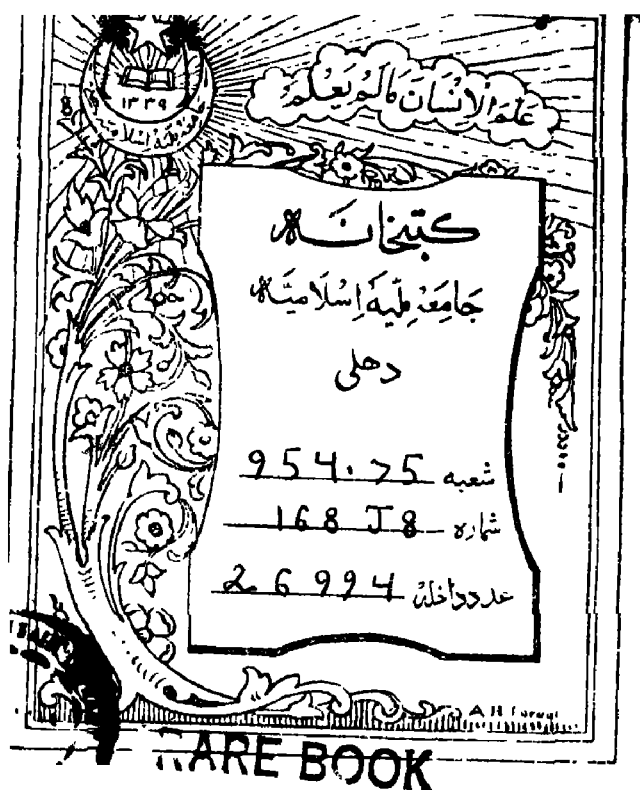 علم الانسان مالم يعلم
١٣٣٩
کتبخانہ
جامعہ ملیہ اسلامیہ
دهلی
شعبه 954.75
شماره 168 J8
عدد داخلہ 26994
RARE BOOK